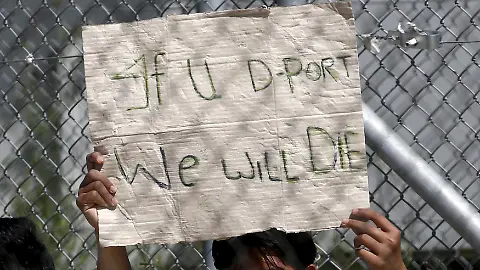 If U D-PORT
We will DIE